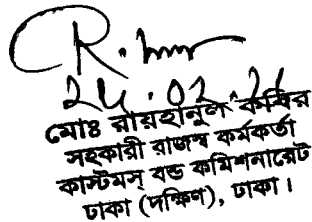 ২৫.০২.২১
মোঃ রায়হানুল কবির
সহকারী রাজস্ব কর্মকর্তা
কাস্টমস্ বন্ড কমিশনারেট
ঢাকা (দক্ষিণ), ঢাকা।